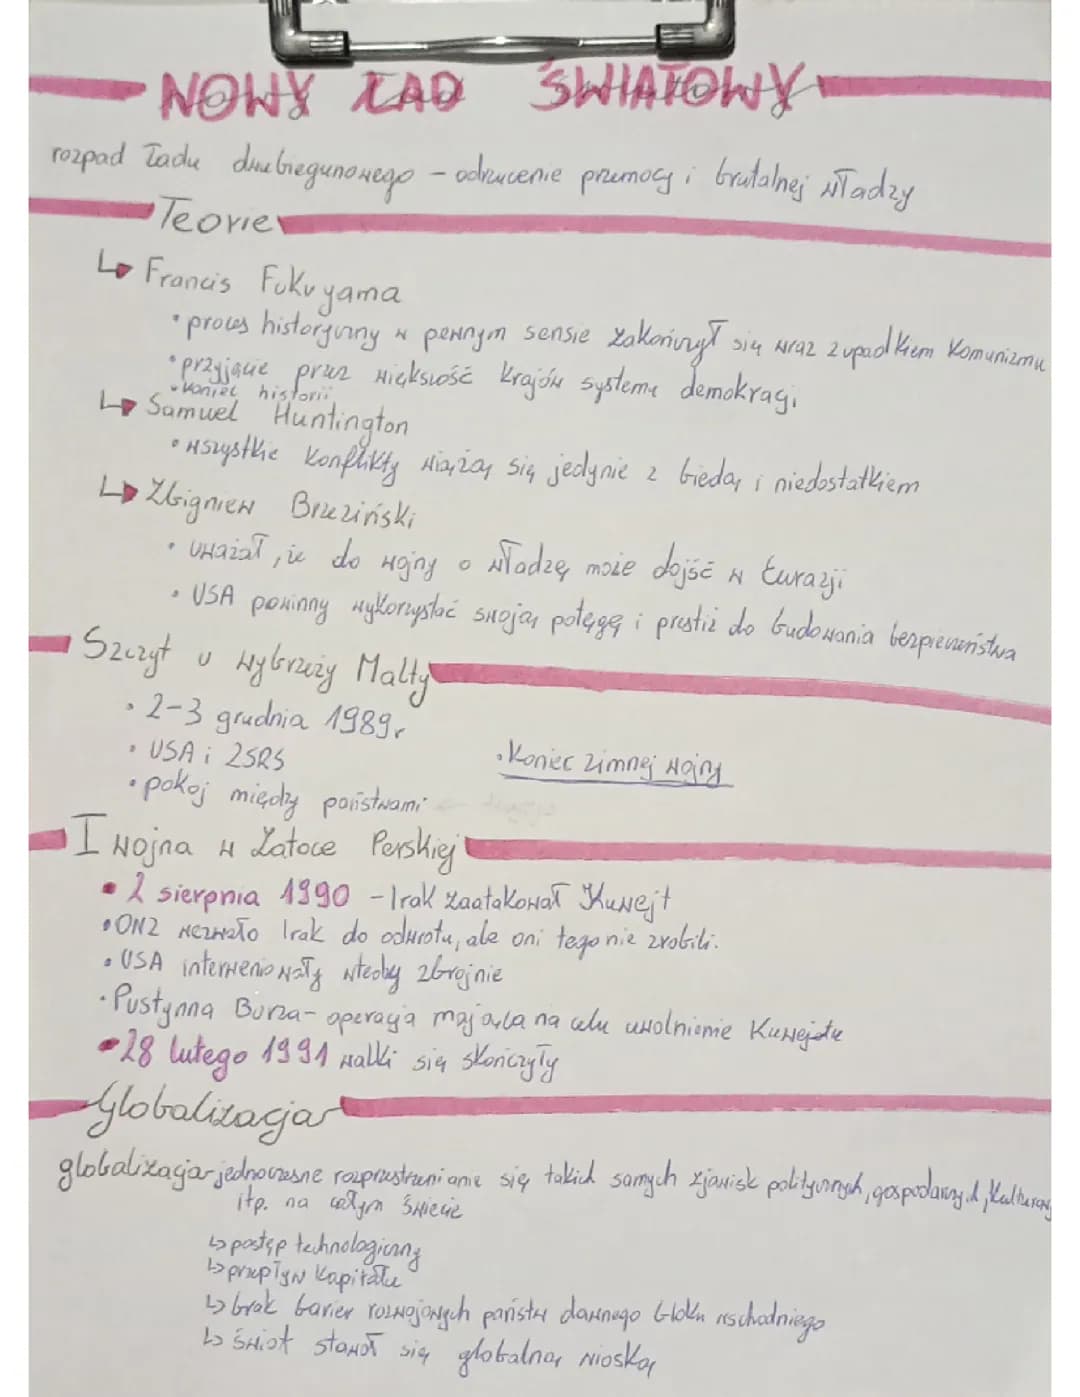 NOWY ŁAD ŚWIATOWY
rozpad ładu dwubiegunowego - odrzucenie przemocy i brutalnej władzy
Teorie
↳ Francis Fukuyama
• proces historyczny w pewnym sensie zakończył się wraz z upadkiem komunizmu
• przyjęcie przez większość krajów systemu demokracji
• koniec historii
↳ Samuel Huntington
• wszystkie konflikty wiążą się jedynie z biedą i niedostatkiem
↳ Zbigniew Brzeziński
• uważał, że do wojny o władzę może dojść w Eurazji
• USA powinny wykorzystać swoją potęgę i prestiż do budowania bezpieczeństwa
Szczyt u wybrzeży Malty
• 2-3 grudnia 1989r
• USA i ZSRS
• Koniec zimnej wojny
• pokój między państwami
I wojna w Zatoce Perskiej
• 2 sierpnia 1990 - Irak zaatakował Kuwejt
• ONZ wezwało Irak do odwrotu, ale oni tego nie zrobili.
• USA interweniowały wtedy zbrojnie
• Pustynna Burza - operacja mająca na celu uwolnienie Kuwejtu
• 28 lutego 1991 walki się skończyły
Globalizacja
globalizacja - jednoczesne rozprzestrzenianie się takich samych zjawisk politycznych, gospodarczych, kulturowy
itp. na całym świecie
↳ postęp technologiczny
↳ przepływ kapitału
↳ brak barier rozwojowych państw dawnego bloku wschodniego
↳ świat stawał się globalną wioską